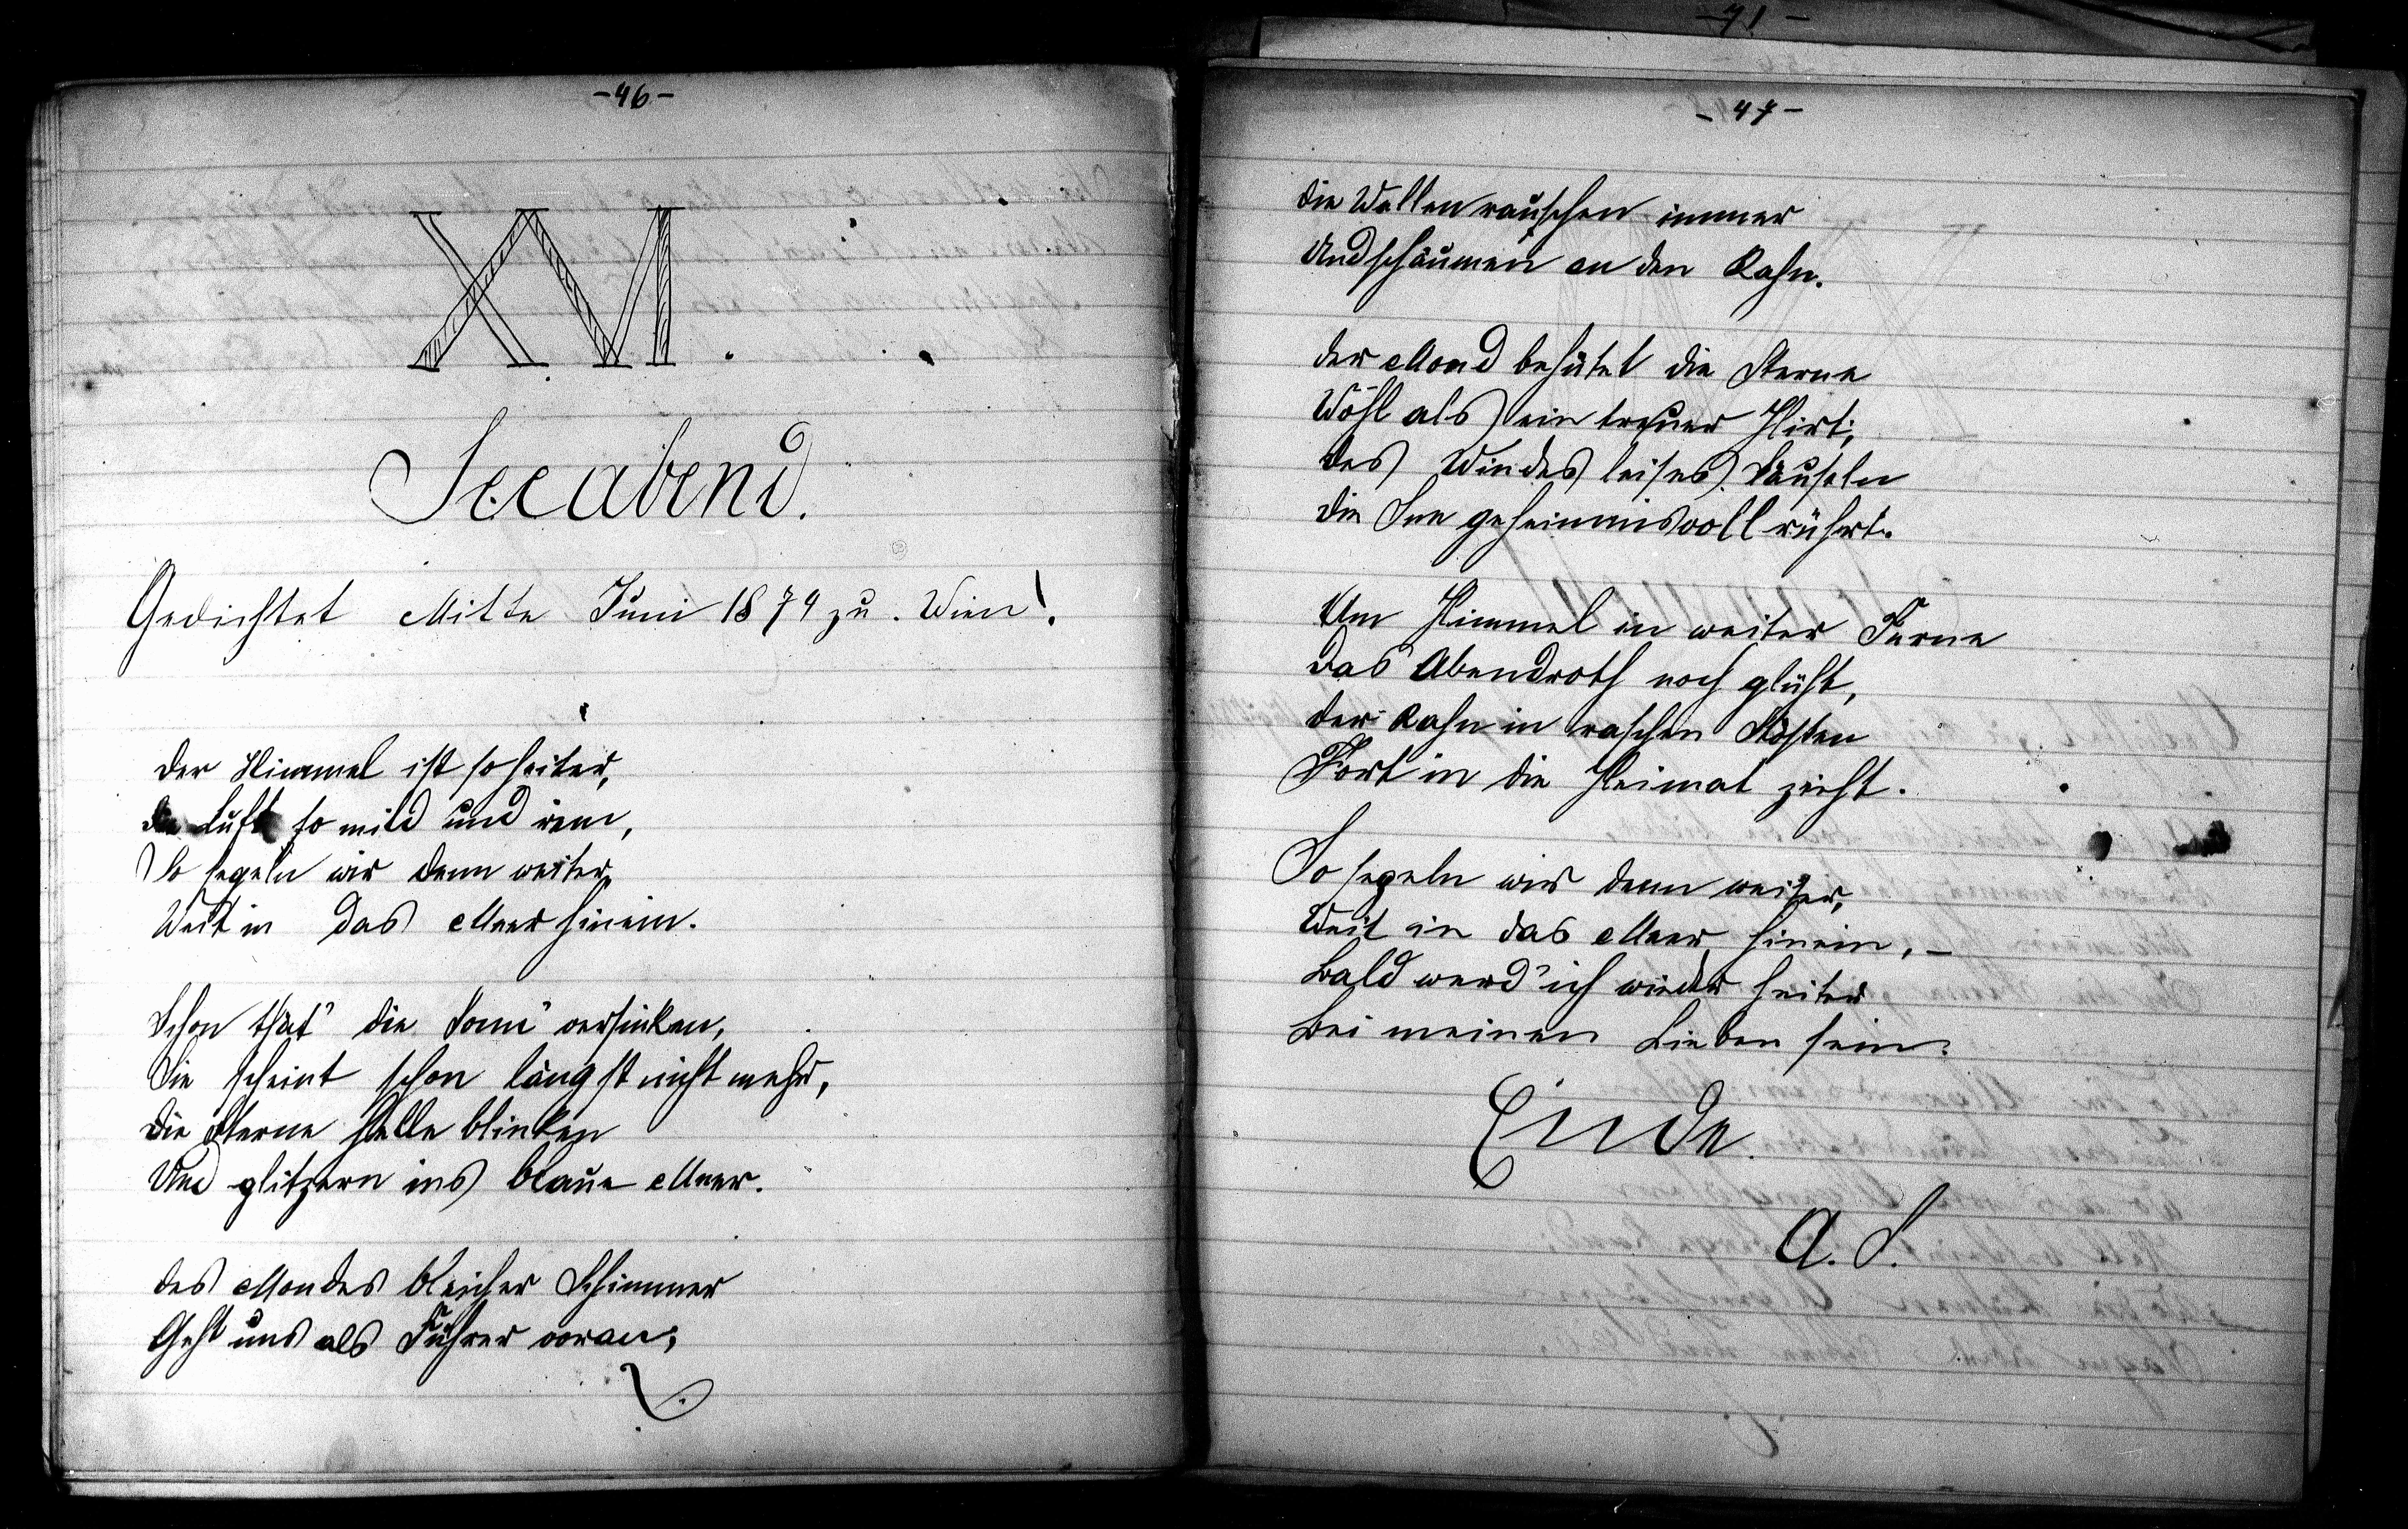 -46-
XVI.
Seeabend.
Gedichtet Mitte Juni 1874 zu. Wien!.
Der Himmel ist so heiter,
Die Luft so mild und rein,
So segeln wir denn weiter,
Weit in das Meer hinein.
Schon thät' die Sonn' versinken,
Sie scheint schon längst nicht mehr,
Die Sterne helle blinken
Und glitzern ins blaue Meer.
Des Mondes bleicher Schimmer
Geht uns als Führer voran;
-47-
Die Wellen rauschen immer
Und schäumen an den Kahn.
Der Mond behütet die Sterne
Wohl als ein treuer Hirt;
Des Windes leises Säuseln
Die See geheimnisvoll rührt.
Am Himmel in weiter Ferne
Das Abendroth noch glüht,
Der Kahn in raschen Stößen
Fort in die Heimat zieht.
So segeln wir denn weiter,
Weit in das Meer hinein, –
Bald werd' ich wieder heiter
Bei meinen Lieben sein.
Ende.
A. S.